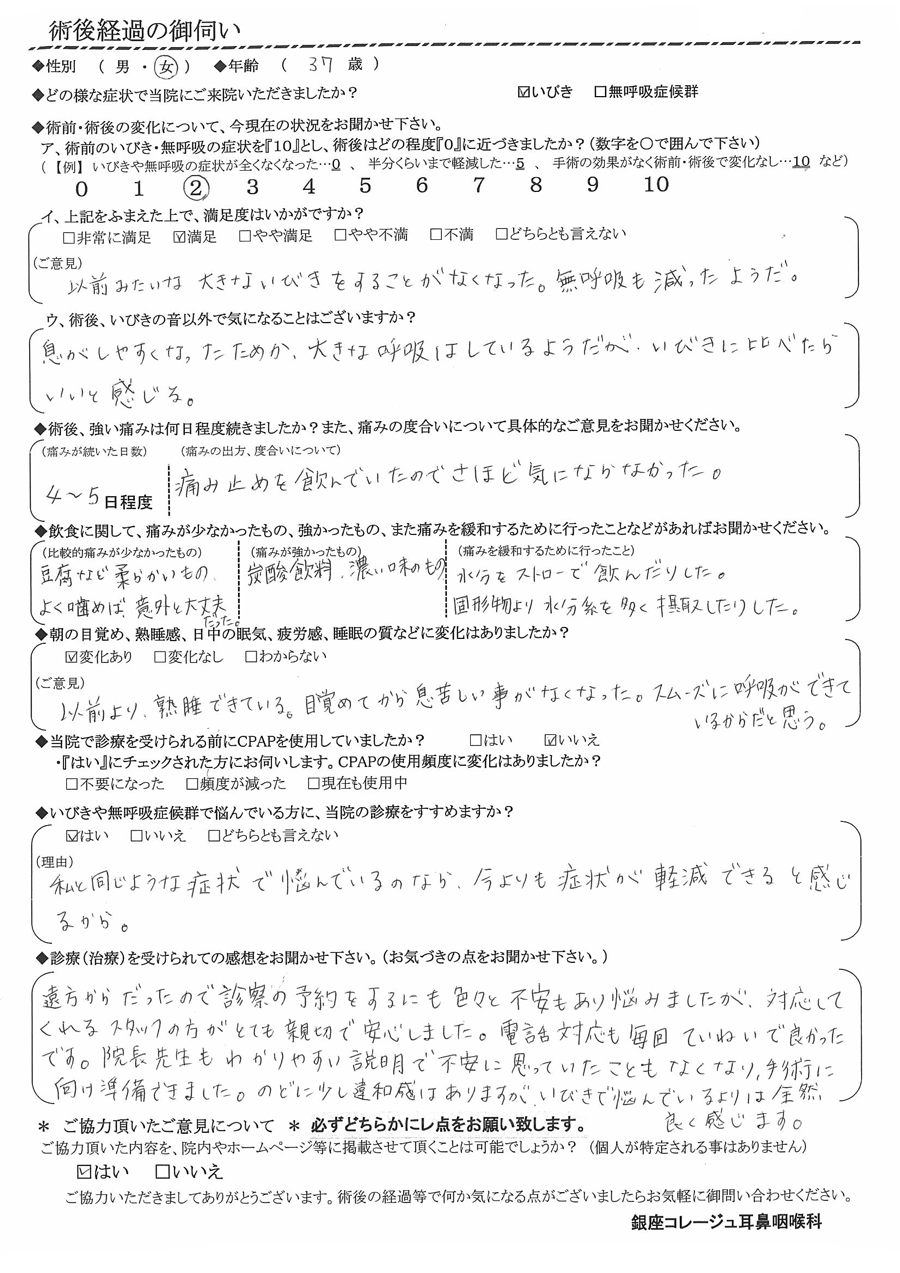 術後経過の御伺い
◆性別 （ 男 ・ 女 ） ◆年齢 （ 37 歳 ）
◆どの様な症状で当院にご来院いただきましたか？ ☑いびき □無呼吸症候群
◆術前・術後の変化について、今現在の状況をお聞かせ下さい。
ア、術前のいびき・無呼吸の症状を『10』とし、術後はどの程度『0』に近づきましたか？（数字を〇で囲んで下さい）
（【例】いびきや無呼吸の症状が全くなくなった…0 、 半分くらいまで軽減した…5 、 手術の効果がなく術前・術後で変化なし…10 など）
0 1 2 3 4 5 6 7 8 9 10
イ、上記をふまえた上で、満足度はいかがですか？
□非常に満足 ☑満足 □やや満足 □やや不満 □不満 □どちらとも言えない
（ご意見）
以前みたいな 大きないびきをすることがなくなった。無呼吸も減ったようだ。
ウ、術後、いびきの音以外で気になることはございますか？
息がしやすくなったためか、大きな呼吸はしているようだが、いびきに比べたら
いいと感じる。
◆術後、強い痛みは何日程度続きましたか？また、痛みの度合いについて具体的なご意見をお聞かせください。
（痛みが続いた日数） （痛みの出方、度合いについて）
4～5日程度 痛み止めを飲んでいたのでさほど気にならなかった。
◆飲食に関して、痛みが少なかったもの、強かったもの、また痛みを緩和するために行ったことなどがあればお聞かせください。
（比較的痛みが少なかったもの） （痛みが強かったもの） （痛みを緩和するために行ったこと）
豆腐など柔らかいもの、 炭酸飲料、濃い味のもの 水分をストローで飲んだりした。
よく噛めば、意外と大丈夫だった。 固形物より水分系を多く摂取したりした。
◆朝の目覚め、熟睡感、日中の眠気、疲労感、睡眠の質などに変化はありましたか？
☑変化あり □変化なし □わからない
（ご意見）
以前より、熟睡できている。目覚めてから息苦しい事がなくなった。スムーズに呼吸ができて
いるからだと思う。
◆当院で診療を受けられる前にCPAPを使用していましたか？ □はい ☑いいえ
・『はい』にチェックされた方にお伺いします。CPAPの使用頻度に変化はありましたか？
□不要になった □頻度が減った □現在も使用中
◆いびきや無呼吸症候群で悩んでいる方に、当院の診療をすすめますか？
☑はい □いいえ □どちらとも言えない
（理由）
私と同じような症状で悩んでいるのなら、今よりも症状が軽減できると感じ
るから。
◆診療（治療）を受けられての感想をお聞かせ下さい。（お気づきの点をお聞かせ下さい。）
遠方からだったので診察の予約をするにも色々と不安もあり悩みましたが、対応して
くれるスタッフの方がとても親切で安心しました。電話対応も毎回ていねいで良かった
です。院長先生もわかりやすい説明で不安に思っていたこともなくなり、手術に
向け準備できました。のどに少し違和感はありますが、いびきで悩んでいるよりは全然、
良く感じます。
＊ ご協力頂いたご意見について ＊ 必ずどちらかにレ点をお願い致します。
ご協力頂いた内容を、院内やホームページ等に掲載させて頂くことは可能でしょうか？（個人が特定される事はありません）
☑はい □いいえ
ご協力いただきましてありがとうございます。術後の経過等で何か気になる点がございましたらお気軽に御問い合わせください。
銀座コレージュ耳鼻咽喉科